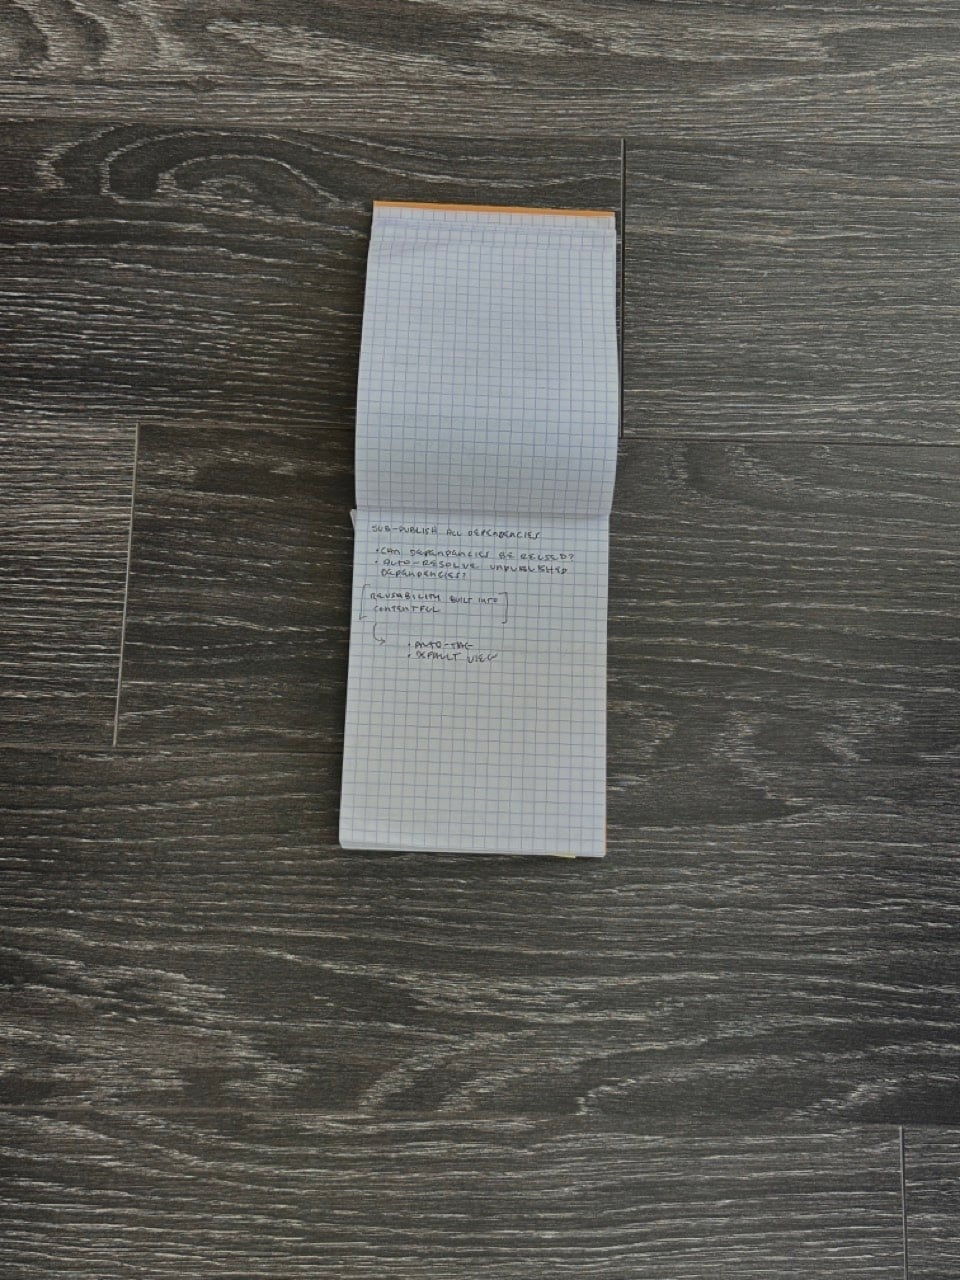 SUB-PUBLISH ALL DEPENDENCIES
• CAN DEPENDANCIES BE REUSED?
• AUTO-RESOLVE UNPUBLISHED
DEPENDENCIES?
[REUSABILITY BUILT INTO
CONTENTFUL]
• AUTO-TAG
• DEFAULT VIEW